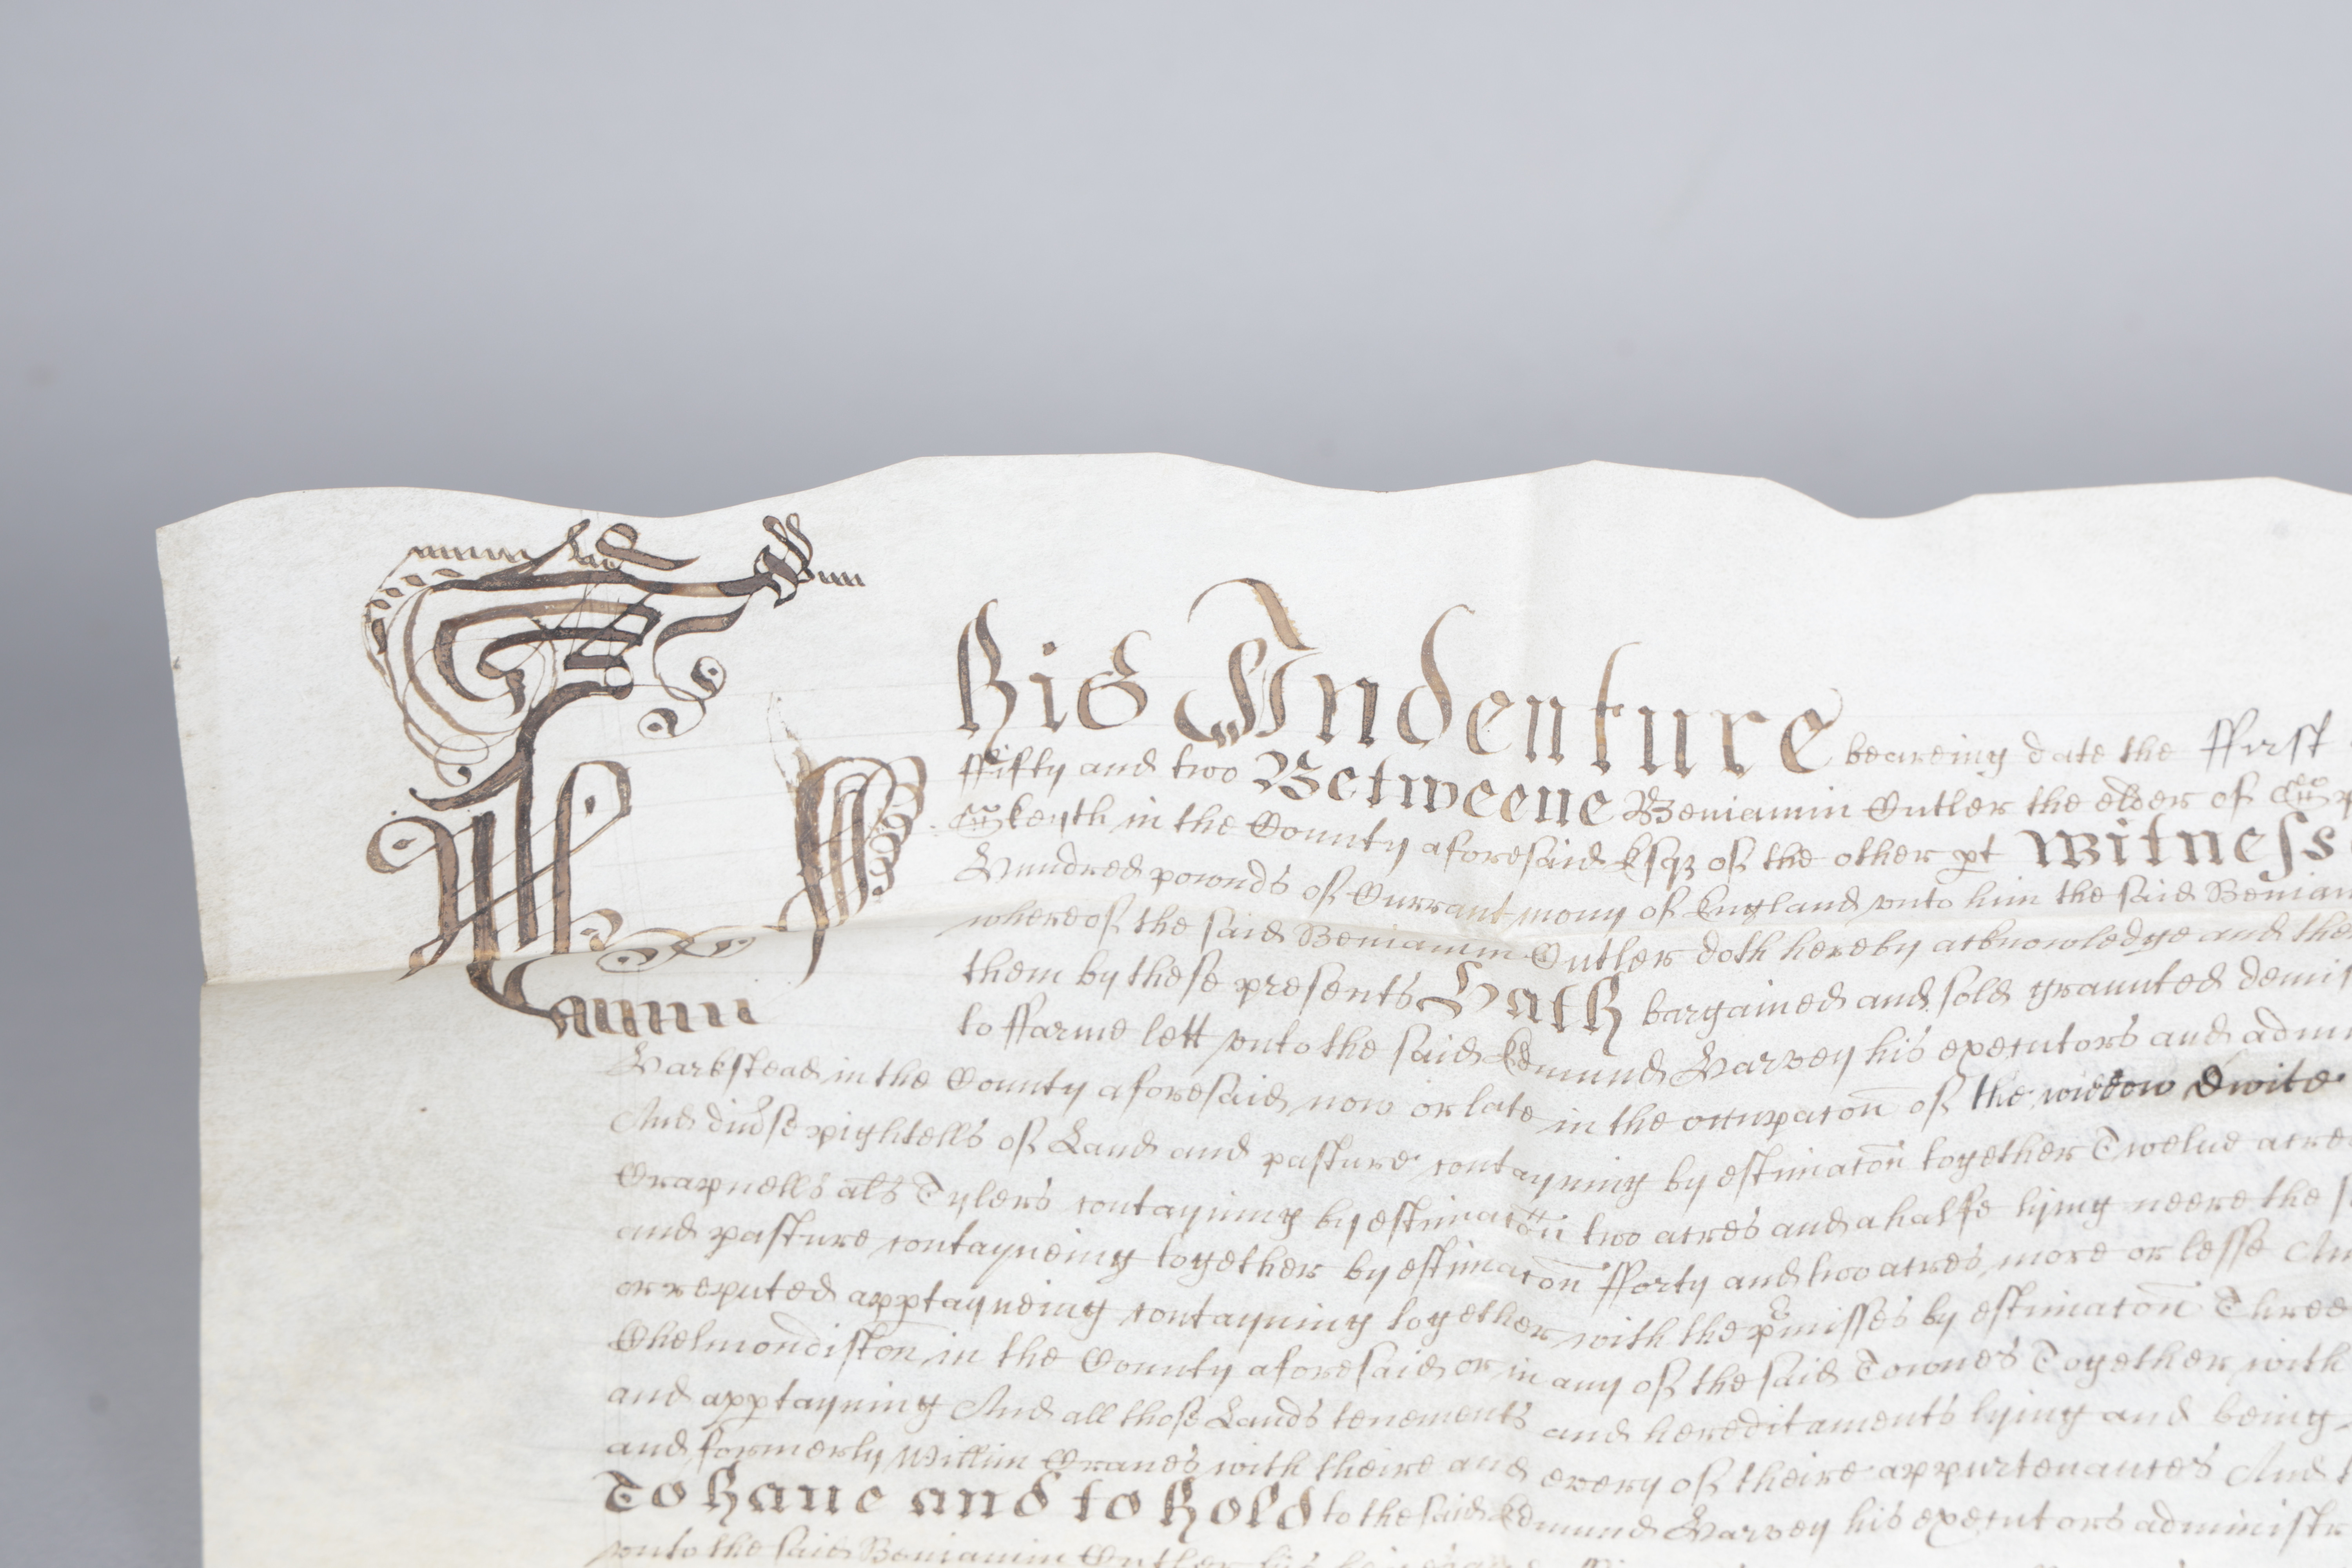 This Indenture beareing date the ffirst
ffifty and two Betweene Beniamin Cutler the elder of
in the County aforesaid Esqz of the other pt Witness
Hundred pownds of Currant mony of England vnto him the said Beniam
whereof the said Beniamin Cutler doth hereby acknowledge and the
them by these presents Hath bargained and sold graunted demis
to ffarme lett vnto the said Edmund Harvey his executors and admi
Harkstead in the County aforesaid now or late in the occupacon of the widdow
And diuse pightells of Land and pasture contayning by estimacon together Twelue acre
Crapnells als Tylers contayning by estimacon two acres and a halfe lying neere the
and pasture contayneing together by estimacon fforty and two acres more or lesse An
or reputed apptayneing contayning together with the pmisses by estimacon Three
Chelmondiston in the County aforesaid or in any of the said Townes Together with
and apptayning And all those Lands tenements and hereditaments lying and being
and formerly Willim Cranes with theire and every of theire appurtenances And
To haue and to hold to the said Edmund Harvey his executors administr
vnto the said Beniamin Cutler his